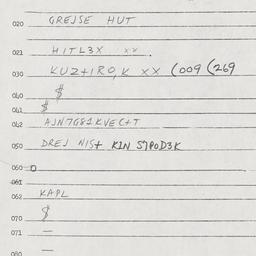 020 GREJSE HUT
021 HITL3X xx .
030 KUZ+IRO,K XX (009 (269
$
040 $
042 AJN7G81KVEC+T
050 DREJ NIS+ KIN S7POD3K
060
061
062 KAPL
070 $
071 —
080 —